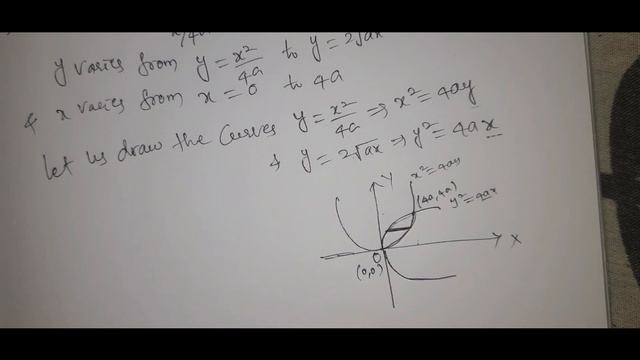 y varies from y = x²/4a to y = 2√ax
& x varies from x = 0 to 4a
Let us draw the Curves y = x²/4a ⇒ x² = 4ay
& y = 2√ax ⇒ y² = 4ax
Y
x² = 4ay
(4a, 4a)
y² = 4ax
X
O
(0,0)